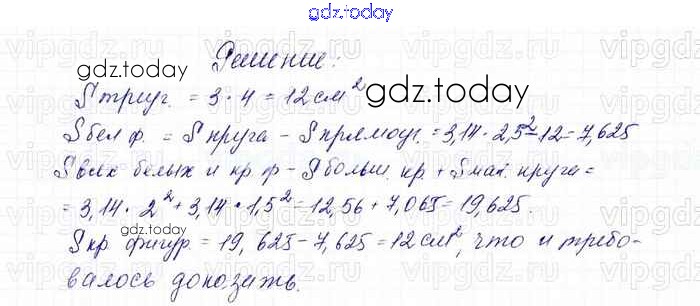 gdz.today
Решение:
gdz.today
S триуг. = 3 · 4 = 12 см²
gdz.today
S бел ф. = S круга - S прямоуг. = 3,14 · 2,5² - 12 = 7,625
S всех белых и кр. ф - S больш. кр + S мал. круга =
= 3,14 · 2² + 3,14 · 1,5² = 12,56 + 7,065 = 19,625.
gdz.today
S кр. фигур. = 19,625 - 7,625 = 12 см², что и требо-
валось доказать.